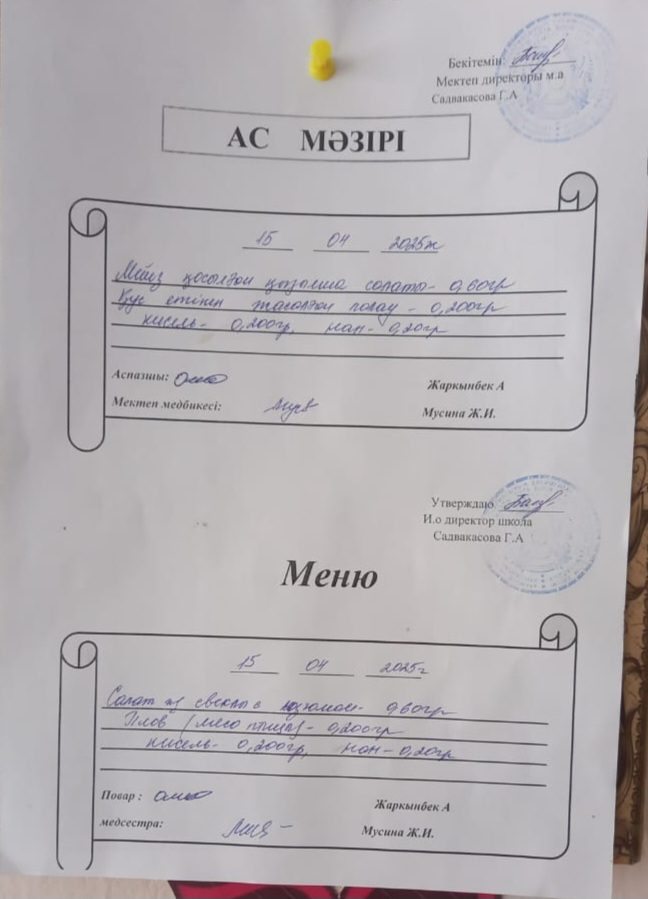 Бекітемін:
Мектеп директоры м.а
Садвакасова Г.А
АС МӘЗІРІ
15 04 2025ж
Мейіз қосылған қызылша салаты - 0,60гр
Құс етінен жасалған палау - 0,200гр
кисель - 0,200гр, нан - 0,20гр
Аспазшы:
Жаркынбек А
Мектеп медбикесі:
Мусина Ж.И.
Утверждаю
И.о директор школа
Садвакасова Г.А
Меню
15 04 2025г
Салат из свеклы с изюмом - 0,60гр
Плов /мясо птицы/ - 0,200гр
кисель - 0,200гр, нан - 0,20гр
Повар :
Жаркынбек А
медсестра:
Мусина Ж.И.